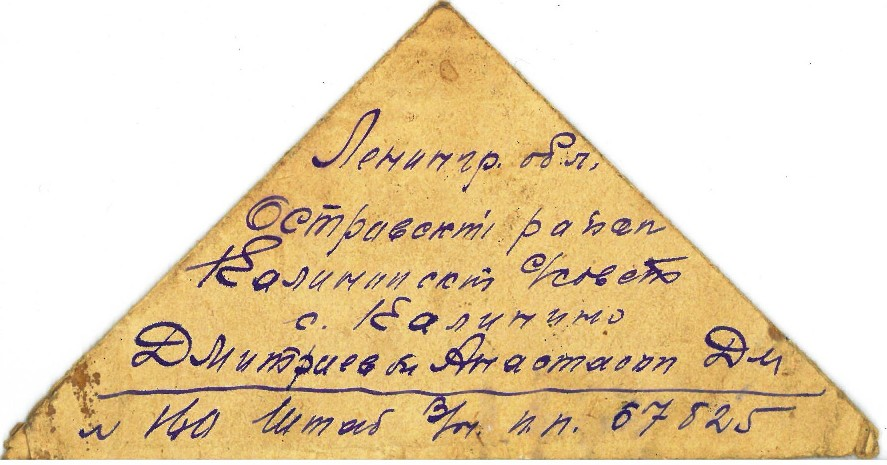 Ленингр. обл.
Островский район
Калининский с/совет
с. Калинино
Дмитриевой Анастасии Дм
Штаб в/ч. п.п.